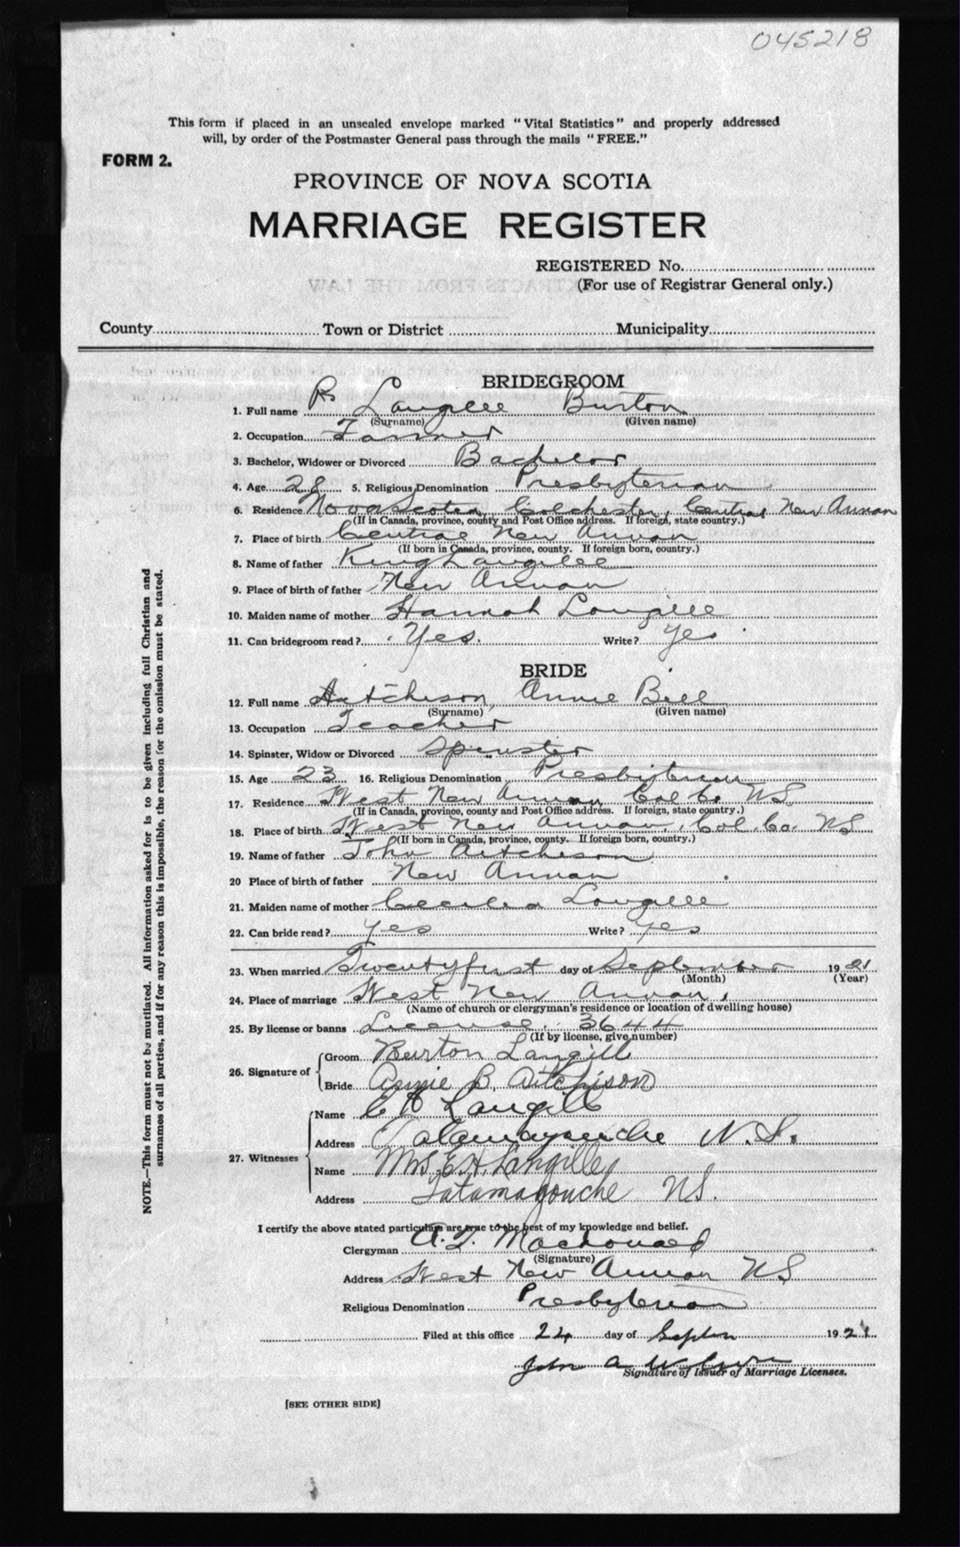 045218
This form if placed in an unsealed envelope marked "Vital Statistics" and properly addressed
will, by order of the Postmaster General pass through the mails "FREE."
FORM 2.
PROVINCE OF NOVA SCOTIA
MARRIAGE REGISTER
REGISTERED No.
(For use of Registrar General only.)
County Town or District Municipality
BRIDEGROOM
1. Full name R Langille Burton
(Surname) (Given name)
2. Occupation Farmer
3. Bachelor, Widower or Divorced Bachelor
4. Age 28 5. Religious Denomination Presbyterian
6. Residence Nova Scotia, Colchester, Central New Annan
(If in Canada, province, county and Post Office address. If foreign, state country.)
7. Place of birth Central New Annan
(If born in Canada, province, county. If foreign born, country.)
8. Name of father King Langille
9. Place of birth of father New Annan
10. Maiden name of mother Hannah Langille
11. Can bridegroom read? Yes. Write? Yes
BRIDE
12. Full name Aitcheson, Annie Bell
(Surname) (Given name)
13. Occupation Teacher
14. Spinster, Widow or Divorced Spinster
15. Age 23 16. Religious Denomination Presbyterian
17. Residence West New Annan Col Co NS.
(If in Canada, province, county and Post Office address. If foreign, state country.)
18. Place of birth West New Annan, Col. Co. NS
(If born in Canada, province, county. If foreign born, country.)
19. Name of father John Aitcheson
20 Place of birth of father New Annan
21. Maiden name of mother Cecelia Langille
22. Can bride read? Yes Write? Yes
23. When married Twentyfirst day of September 1921
(Month) (Year)
24. Place of marriage West New Annan,
(Name of church or clergyman's residence or location of dwelling house)
25. By license or banns License. 3644
(If by license, give number)
26. Signature of
Groom Burton Langill
Bride Annie B. Aitchison
27. Witnesses
Name Langill
Address Tatamagouche N.S.
Name Mrs. E.H. Langille
Address Tatamagouche NS.
I certify the above stated particulars are true to the best of my knowledge and belief.
Clergyman Macdonald
(Signature)
Address West New Annan NS
Religious Denomination Presbyterian
Filed at this office 24 day of 1921.
John A
Signature of Issuer of Marriage Licenses.
[SEE OTHER SIDE]
NOTE.—This form must not be mutilated. All information asked for is to be given including full Christian and
surnames of all parties, and if for any reason this is impossible, the reason for the omission must be stated.